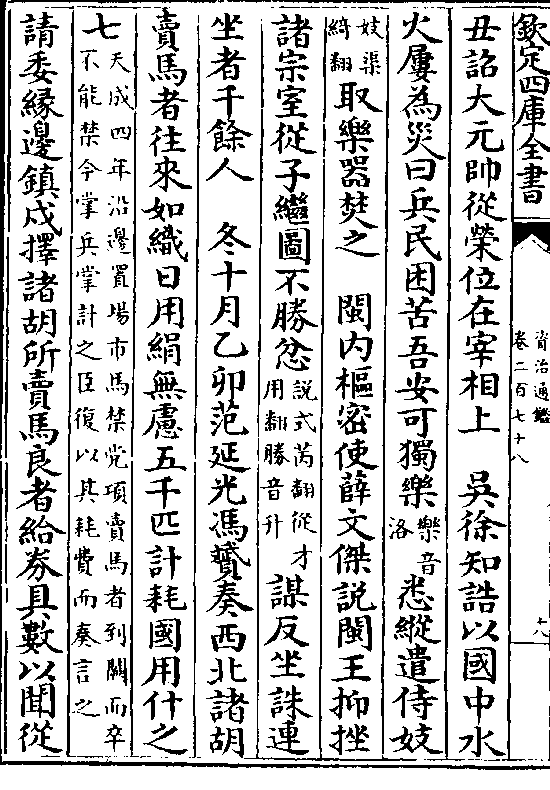 欽定四庫全書
資治通鑑
卷二百七十八
丑詔大元帥從榮位在宰相上　吳徐知誥以國中水
火屢為災曰兵民困苦吾安可獨樂樂音洛悉縱遣侍妓
妓渠綺翻取樂器焚之　閩内樞密使薛文傑説閩王抑挫
諸宗室從子繼圖不勝忿説式芮翻從才用翻勝音升謀反坐誅連
坐者千餘人　冬十月乙卯范延光馮贇奏西北諸胡
賣馬者往來如織日用絹無慮五千匹計耗國用什之
七天成四年沿邊置場市馬禁党項賣馬者到闕而卒不能禁今掌兵掌計之臣復以其耗費而奏言之
請委緣邊鎮戍擇諸胡所賣馬良者給券具數以聞從